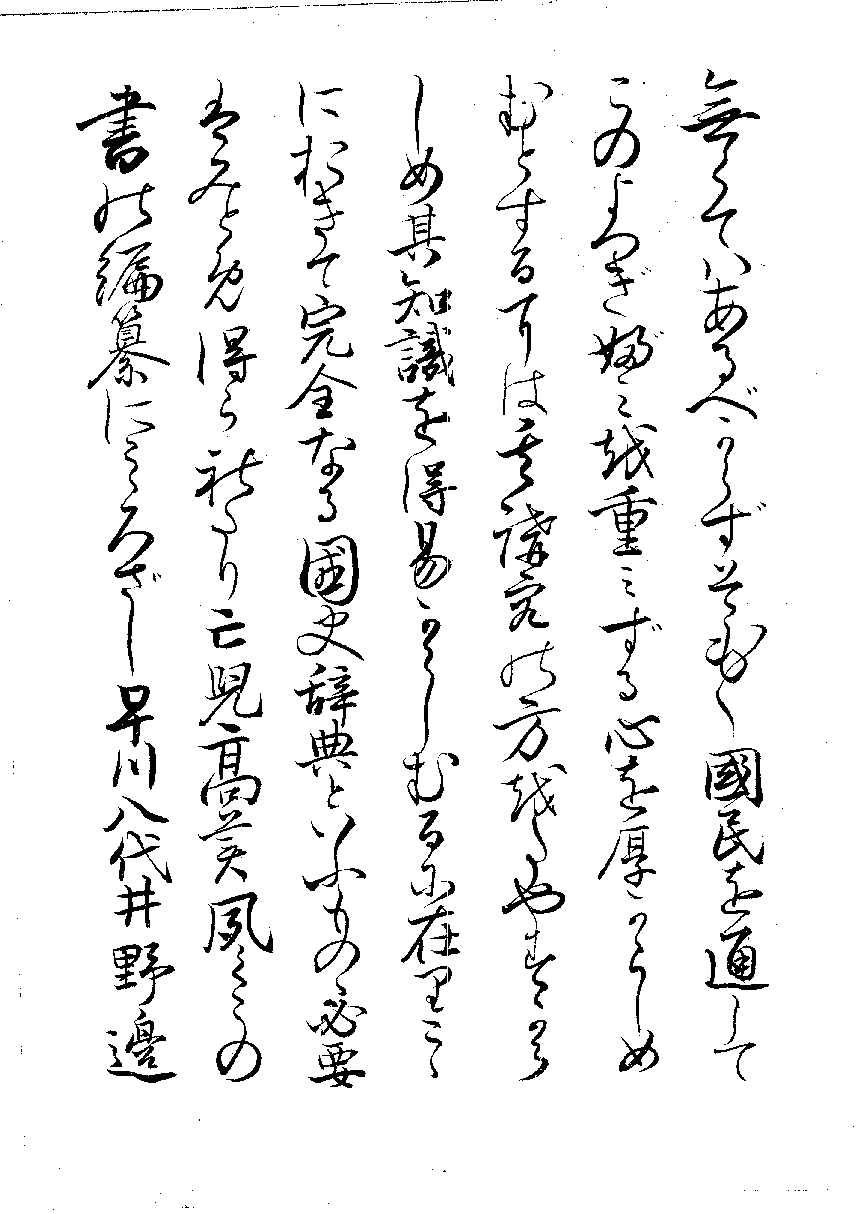 無くてハあるべからずそも〱國民を通して
このよつぎぶミを重ミずる心を厚からしめ
むとする事は其講究の方をたやすから
しめ其知識を得易からしむるに在りこゝ
におきて完全なる國史辞典といふものゝ必要
はみとめ得られたり亡児高美夙くこの
書の編纂にこゝろざし早川八代井野邊